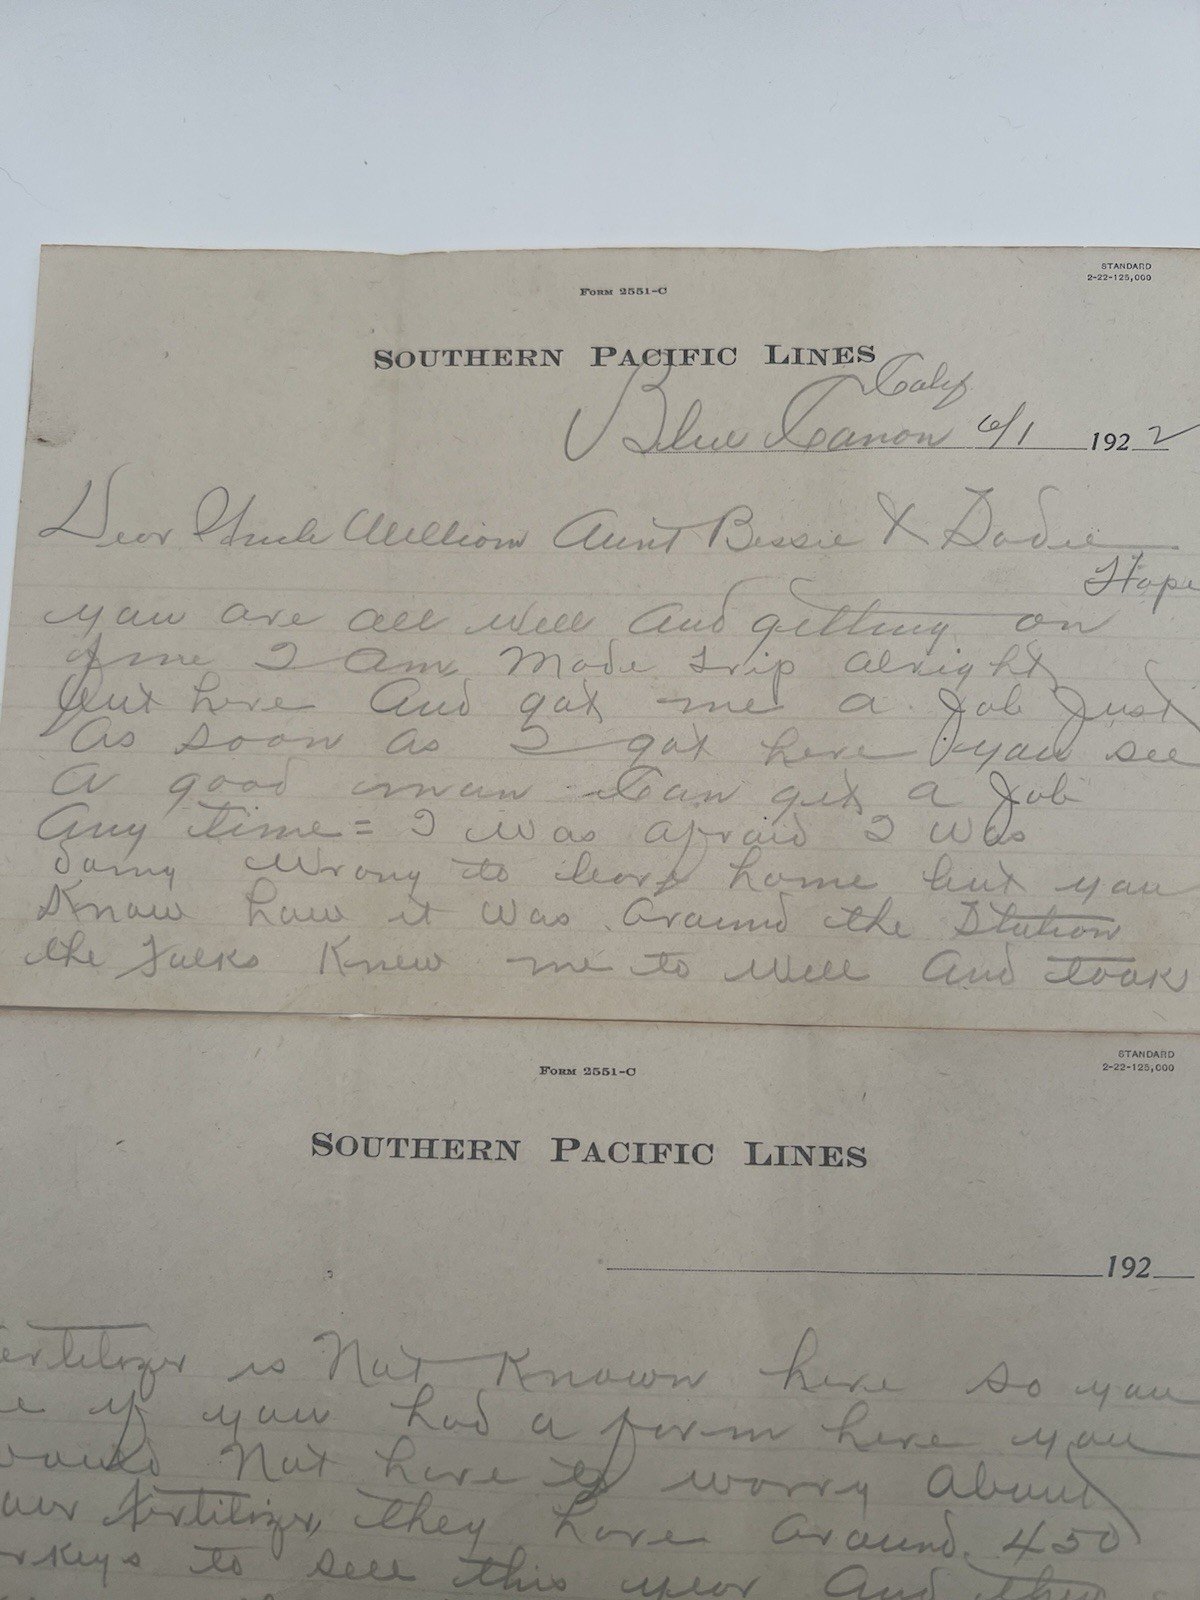 STANDARD
2-22-125,000
FORM 2551-C
SOUTHERN PACIFIC LINES
Calif
Blue Canon 6/1 1922
Dear Uncle William Aunt Bessie & Dodie
Hope
you are all well And getting on
fine I Am Made trip alright
out here And got me a Job Just
As soon as I got here you see
A good man Can get a Job
Any time = I was afraid I was
doing Wrong to leave home but you
Know how it was around the Station
the Fulks Knew me to well And took
STANDARD
2-22-125,000
FORM 2551-C
SOUTHERN PACIFIC LINES
192
ertilizer is Not Known here so you
e if you had a farm here you
would Not have to worry About
our fertilizer, they have around 450
rkeys to sell this year And they